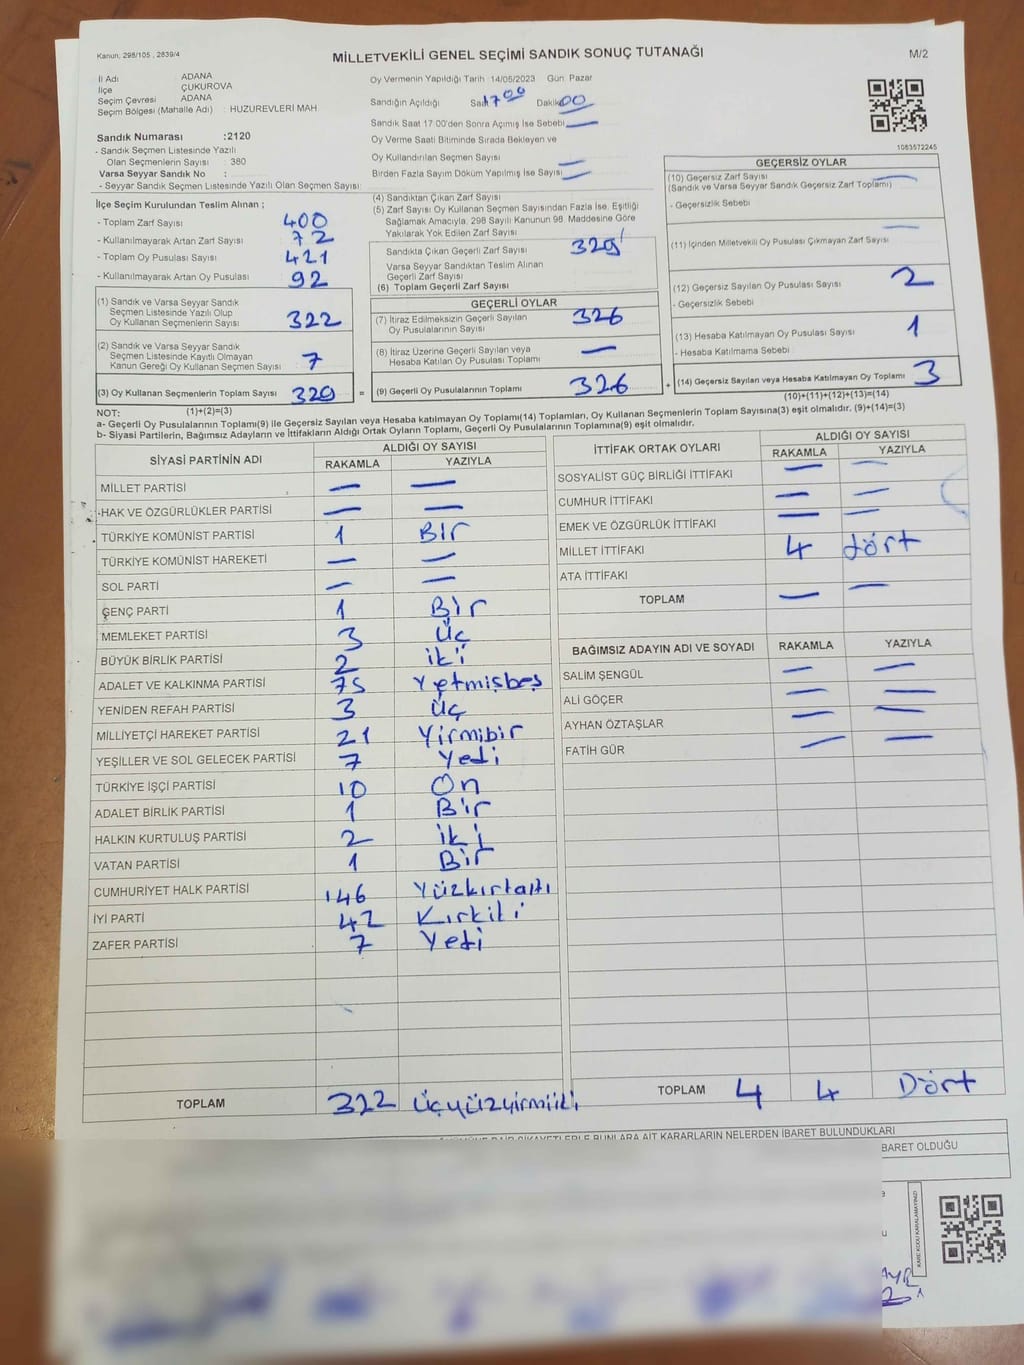 Kanun, 298/105 , 2839/4
MİLLETVEKİLİ GENEL SEÇİMİ SANDIK SONUÇ TUTANAĞI
M/2
İl Adı ADANA
İlçe ÇUKUROVA
Seçim Çevresi ADANA
Seçim Bölgesi (Mahalle Adı) : HUZUREVLERİ MAH.
Oy Vermenin Yapıldığı Tarih :14/05/2023 Gün: Pazar
Sandığın Açıldığı Saat 17 00 Dakika 00
Sandık Saat 17 00'den Sonra Açımış İse Sebebi —
Oy Verme Saati Bitiminde Sırada Bekleyen ve
Oy Kullandırılan Seçmen Sayısı —
Birden Fazla Sayım Döküm Yapılmış İse Sayısı —
1083572245
Sandık Numarası :2120
- Sandık Seçmen Listesinde Yazılı
Olan Seçmenlerin Sayısı : 380
Varsa Seyyar Sandık No :
- Seyyar Sandık Seçmen Listesinde Yazılı Olan Seçmen Sayısı:
İlçe Seçim Kurulundan Teslim Alınan ;
- Toplam Zarf Sayısı 400
- Kullanılmayarak Artan Zarf Sayısı 72
- Toplam Oy Pusulası Sayısı 421
- Kullanılmayarak Artan Oy Pusulası 92
(1) Sandık ve Varsa Seyyar Sandık
Seçmen Listesinde Yazılı Olup
Oy Kullanan Seçmenlerin Sayısı 322
(2) Sandık ve Varsa Seyyar Sandık
Seçmen Listesinde Kayıtlı Olmayan
Kanun Gereği Oy Kullanan Seçmen Sayısı 7
(3) Oy Kullanan Seçmenlerin Toplam Sayısı 329 =
(1)+(2)=(3)
(4) Sandıktan Çıkan Zarf Sayısı
(5) Zarf Sayısı Oy Kullanan Seçmen Sayısından Fazla İse, Eşitliği
Sağlamak Amacıyla, 298 Sayılı Kanunun 98. Maddesine Göre
Yakılarak Yok Edilen Zarf Sayısı
Sandıkta Çıkan Geçerli Zarf Sayısı 329
Varsa Seyyar Sandıktan Teslim Alınan
Geçerli Zarf Sayısı
(6) Toplam Geçerli Zarf Sayısı
GEÇERLİ OYLAR
(7) İtiraz Edilmeksizin Geçerli Sayılan
Oy Pusulalarının Sayısı 326
(8) İtiraz Üzerine Geçerli Sayılan veya
Hesaba Katılan Oy Pusulası Toplamı —
(9) Geçerli Oy Pusulalarının Toplamı 326 +
GEÇERSİZ OYLAR
(10) Geçersiz Zarf Sayısı —
(Sandık ve Varsa Seyyar Sandık Geçersiz Zarf Toplamı)
- Geçersizlik Sebebi
(11) İçinden Milletvekili Oy Pusulası Çıkmayan Zarf Sayısı —
(12) Geçersiz Sayılan Oy Pusulası Sayısı 2
- Geçersizlik Sebebi
(13) Hesaba Katılmayan Oy Pusulası Sayısı 1
- Hesaba Katılmama Sebebi
(14) Geçersiz Sayılan veya Hesaba Katılmayan Oy Toplamı 3
(10)+(11)+(12)+(13)=(14)
NOT:
a- Geçerli Oy Pusulalarının Toplamı(9) ile Geçersiz Sayılan veya Hesaba katılmayan Oy Toplamı(14) Toplamları, Oy Kullanan Seçmenlerin Toplam Sayısına(3) eşit olmalıdır. (9)+(14)=(3)
b- Siyasi Partilerin, Bağımsız Adayların ve İttifakların Aldığı Ortak Oyların Toplamı, Geçerli Oy Pusulalarının Toplamına(9) eşit olmalıdır.
SİYASİ PARTİNİN ADI ALDIĞI OY SAYISI
RAKAMLA YAZIYLA
MİLLET PARTİSİ — —
HAK VE ÖZGÜRLÜKLER PARTİSİ — —
TÜRKİYE KOMÜNİST PARTİSİ 1 Bir
TÜRKİYE KOMÜNİST HAREKETİ — —
SOL PARTİ — —
GENÇ PARTİ 1 Bir
MEMLEKET PARTİSİ 3 Üç
BÜYÜK BİRLİK PARTİSİ 2 iki
ADALET VE KALKINMA PARTİSİ 75 Yetmişbeş
YENİDEN REFAH PARTİSİ 3 Üç
MİLLİYETÇİ HAREKET PARTİSİ 21 Yirmibir
YEŞİLLER VE SOL GELECEK PARTİSİ 7 Yedi
TÜRKİYE İŞÇİ PARTİSİ 10 On
ADALET BİRLİK PARTİSİ 1 Bir
HALKIN KURTULUŞ PARTİSİ 2 iki
VATAN PARTİSİ 1 Bir
CUMHURİYET HALK PARTİSİ 146 Yüzkırtaltı
İYİ PARTİ 42 Kırkiki
ZAFER PARTİSİ 7 Yedi
TOPLAM 322 üçyüzyirmiiki
İTTİFAK ORTAK OYLARI ALDIĞI OY SAYISI
RAKAMLA YAZIYLA
SOSYALİST GÜÇ BİRLİĞİ İTTİFAKI — —
CUMHUR İTTİFAKI — —
EMEK VE ÖZGÜRLÜK İTTİFAKI — —
MİLLET İTTİFAKI 4 dört
ATA İTTİFAKI
TOPLAM — —
BAĞIMSIZ ADAYIN ADI VE SOYADI RAKAMLA YAZIYLA
SALİM ŞENGÜL — —
ALİ GÖÇER — —
AYHAN ÖZTAŞLAR — —
FATİH GÜR — —
TOPLAM 4 4 Dört
AİT KARARLARIN NELERDEN İBARET BULUNDUKLARI
BARET OLDUĞU
KARE KODU KARALAMAYINIZ!